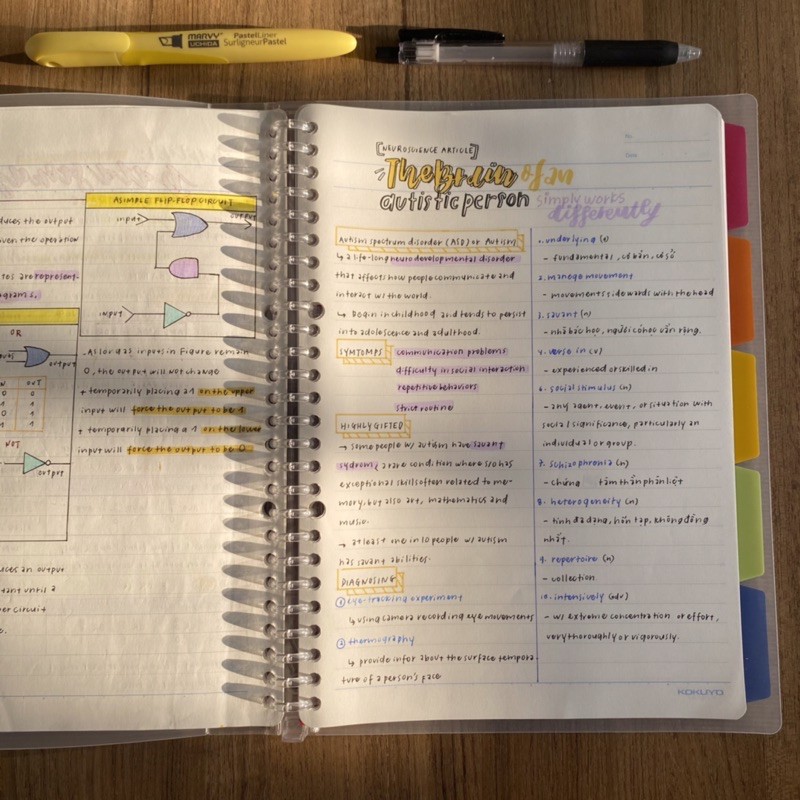 MARVY
UCHIDA
PastelLiner
SurligneurPastel
A SIMPLE FLIP-FLOP CIRCUIT
input
output
input
duces the output
given the operation
tes are represent-
agrams.
OR
output
OUT
0
0
1
0
1
1
1
NOT
output
- As long as inputs in Figure remain
0, the output will not change
+ temporarily placing a 1 on the upper
input will force the output to be 1
+ temporarily placing a 1 on the lower
input will force the output to be 0
uces an output
tant until a
er circuit
e.
No.
Date
[NEUROSCIENCE ARTICLE]
The Brain of an
autistic person simply works
differently
Autism spectrum disorder (ASD) or Autism
↳ a life-long neuro developmental disorder
that affects how people communicate and
interact w/ the world.
↳ Begin in childhood and tends to persist
into adolescence and adulthood.
SYMTOMPS communication problems
difficulty in social interaction
repetitive behaviors
strict routine
HIGHLY GIFTED
→ some people w/ autism have savant
sydrome, a rare condition where s/o has
exceptional skills often related to me-
mory, but also art, mathematics and
music.
→ at least one in 10 people w/ autism
has savant abilities.
DIAGNOSING
① eye-tracking experiment
↳ using camera recording eye movements
② thermography
↳ provide infor about the surface tempora
ture of a person's pace
1. underlying (a)
- fundamental, cơ bản, cơ sở
2. manege movement
- movement sidewards with the head
3. savant (n)
- nhà bác học, người có học vấn rộng.
4. verse in (v)
- experienced or skilled in
6. social stimulus (n)
- any agent, event, or situation with
social significance, particularly an
individual or group.
7. schizophronia (n)
- chứng tâm thần phân liệt
8. heterogeneity (n)
- tính đa dạng, hỗn tạp, không đồng
nhất.
9. repertoire (n)
- collection.
10. intensively (adv)
- w/ extreme concentration or effort,
very thoroughly or vigorously.
KOKUYO